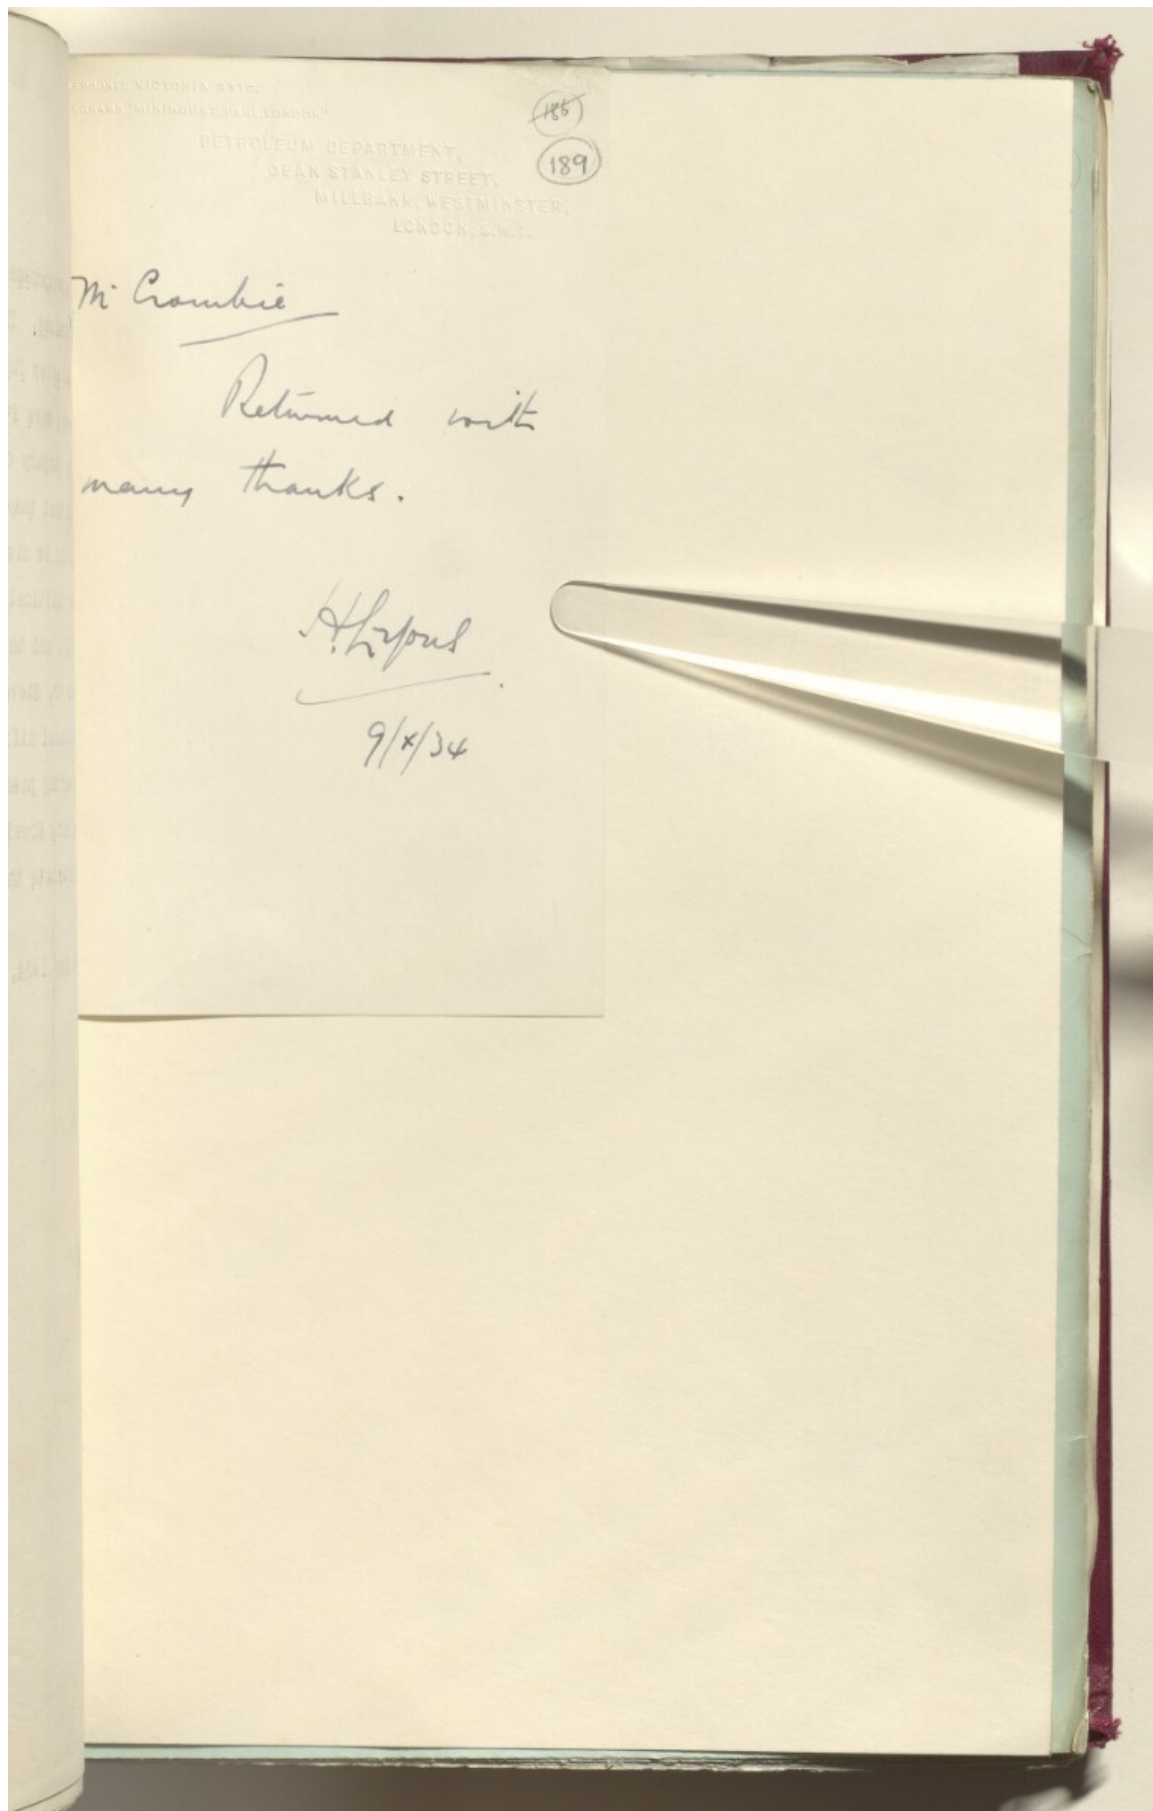 VICTORIA 9310.
LONDON"
186
189
PETROLEUM DEPARTMENT,
DEAN STANLEY STREET,
MILLBANK, WESTMINSTER,
LONDON, S.W.1.
Mr Crombie
Returned with
many thanks.
9/x/34